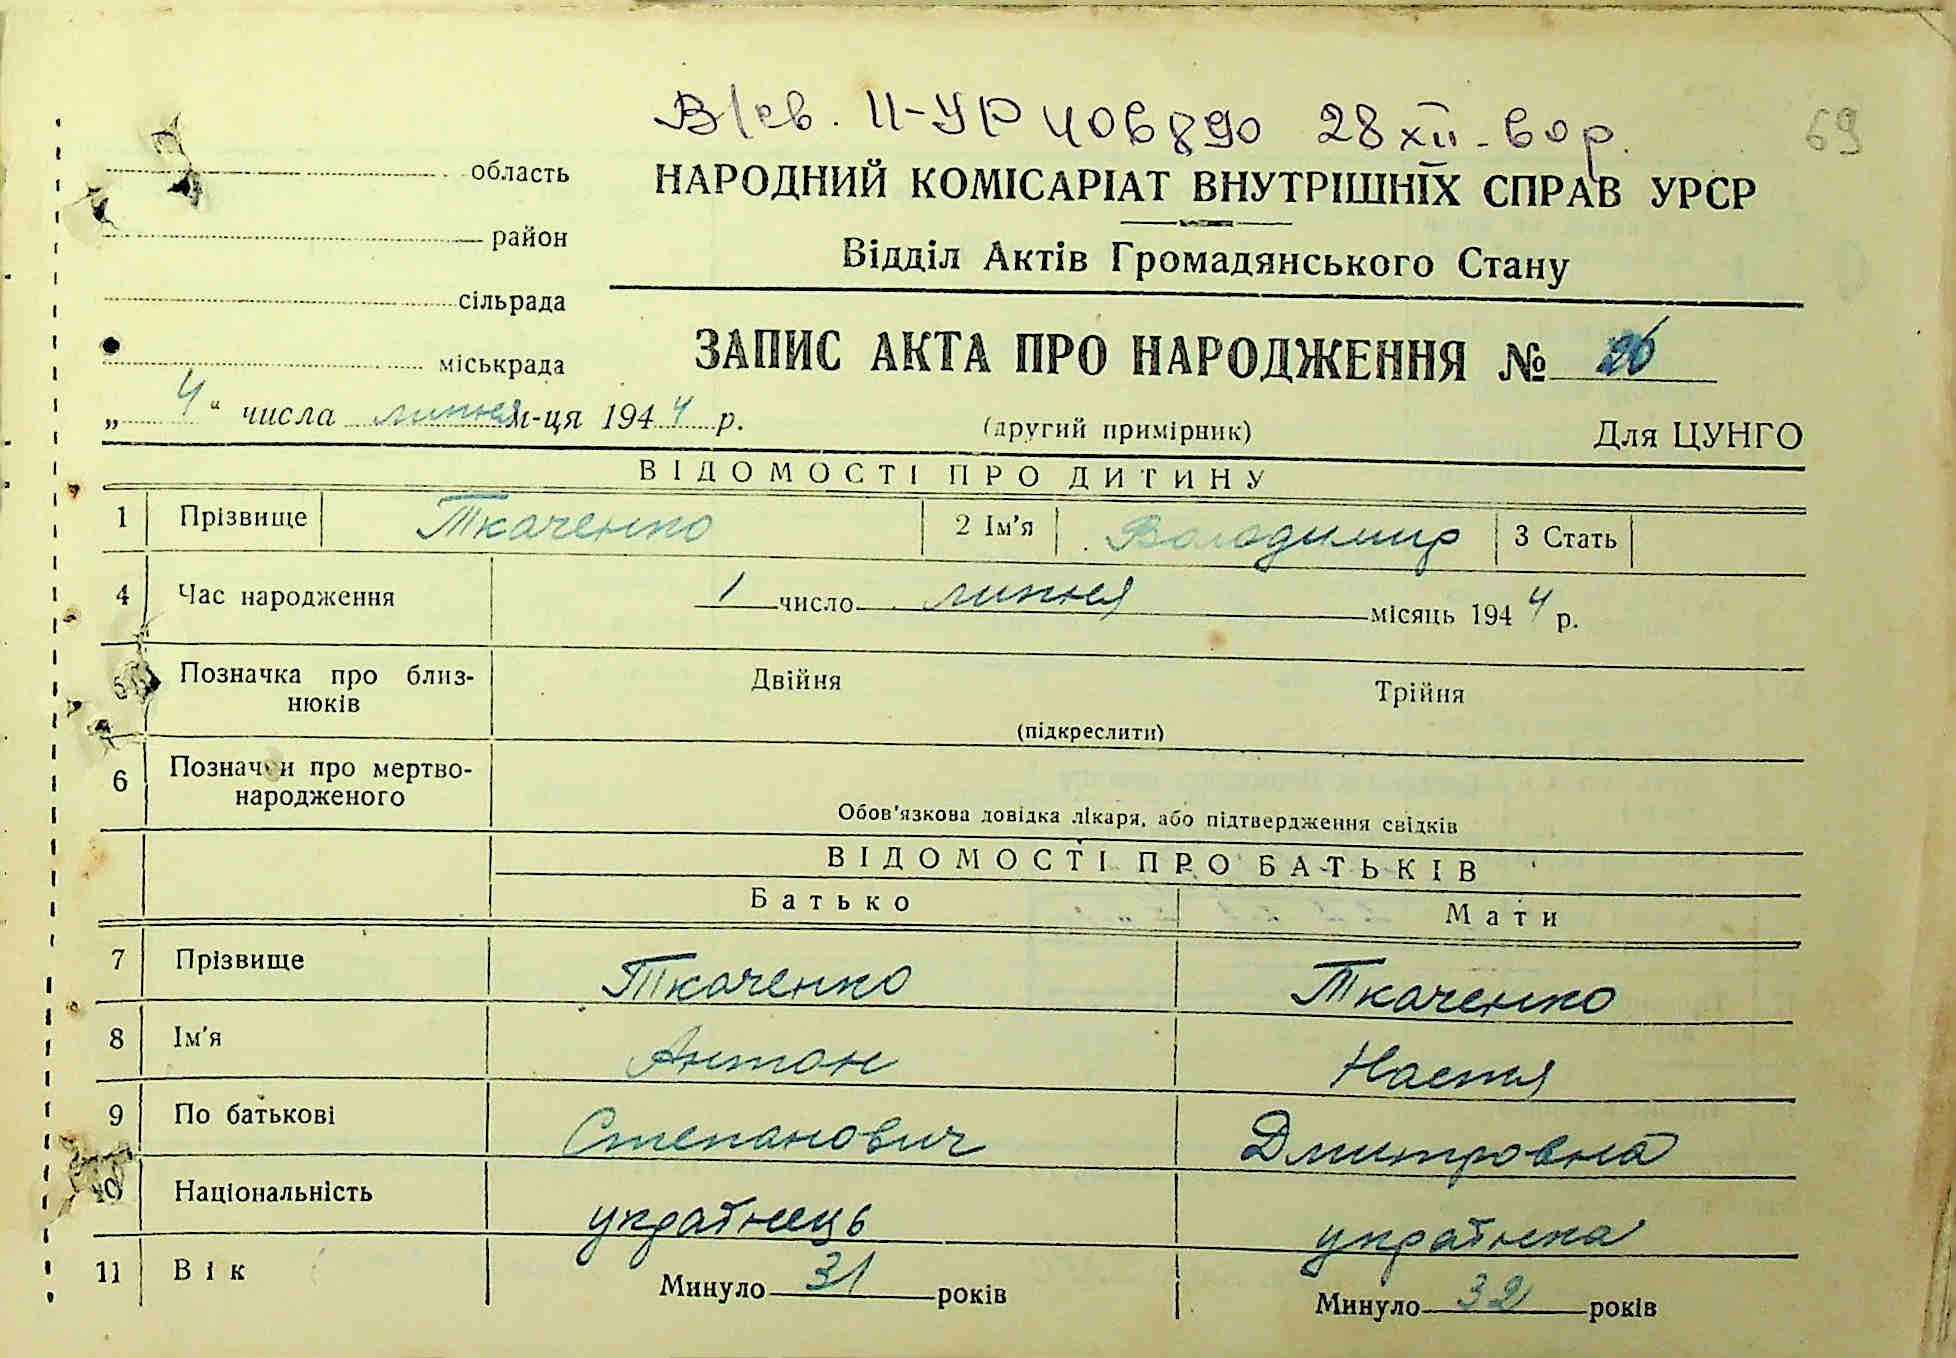 В/св. II-УР 406890 28 XII-60р.
69
область
НАРОДНИЙ КОМІСАРІАТ ВНУТРІШНІХ СПРАВ УРСР
район
Відділ Актів Громадянського Стану
сільрада
міськрада
ЗАПИС АКТА ПРО НАРОДЖЕННЯ № 26
„4“ числа липня м-ця 1944 р.
(другий примірник)
Для ЦУНГО
ВІДОМОСТІ ПРО ДИТИНУ
1 Прізвище Ткаченко 2 Ім'я Володимир 3 Стать
4 Час народження 1 число липня місяць 1944 р.
5 Позначка про близ-
нюків
Двійня Трійня
(підкреслити)
6 Позначки про мертво-
народженого
Обов'язкова довідка лікаря, або підтвердження свідків
ВІДОМОСТІ ПРО БАТЬКІВ
Батько Мати
7 Прізвище Ткаченко Ткаченко
8 Ім'я Антон Настя
9 По батькові Степанович Дмитровна
10 Національність українець українка
11 Вік Минуло 31 років Минуло 32 років